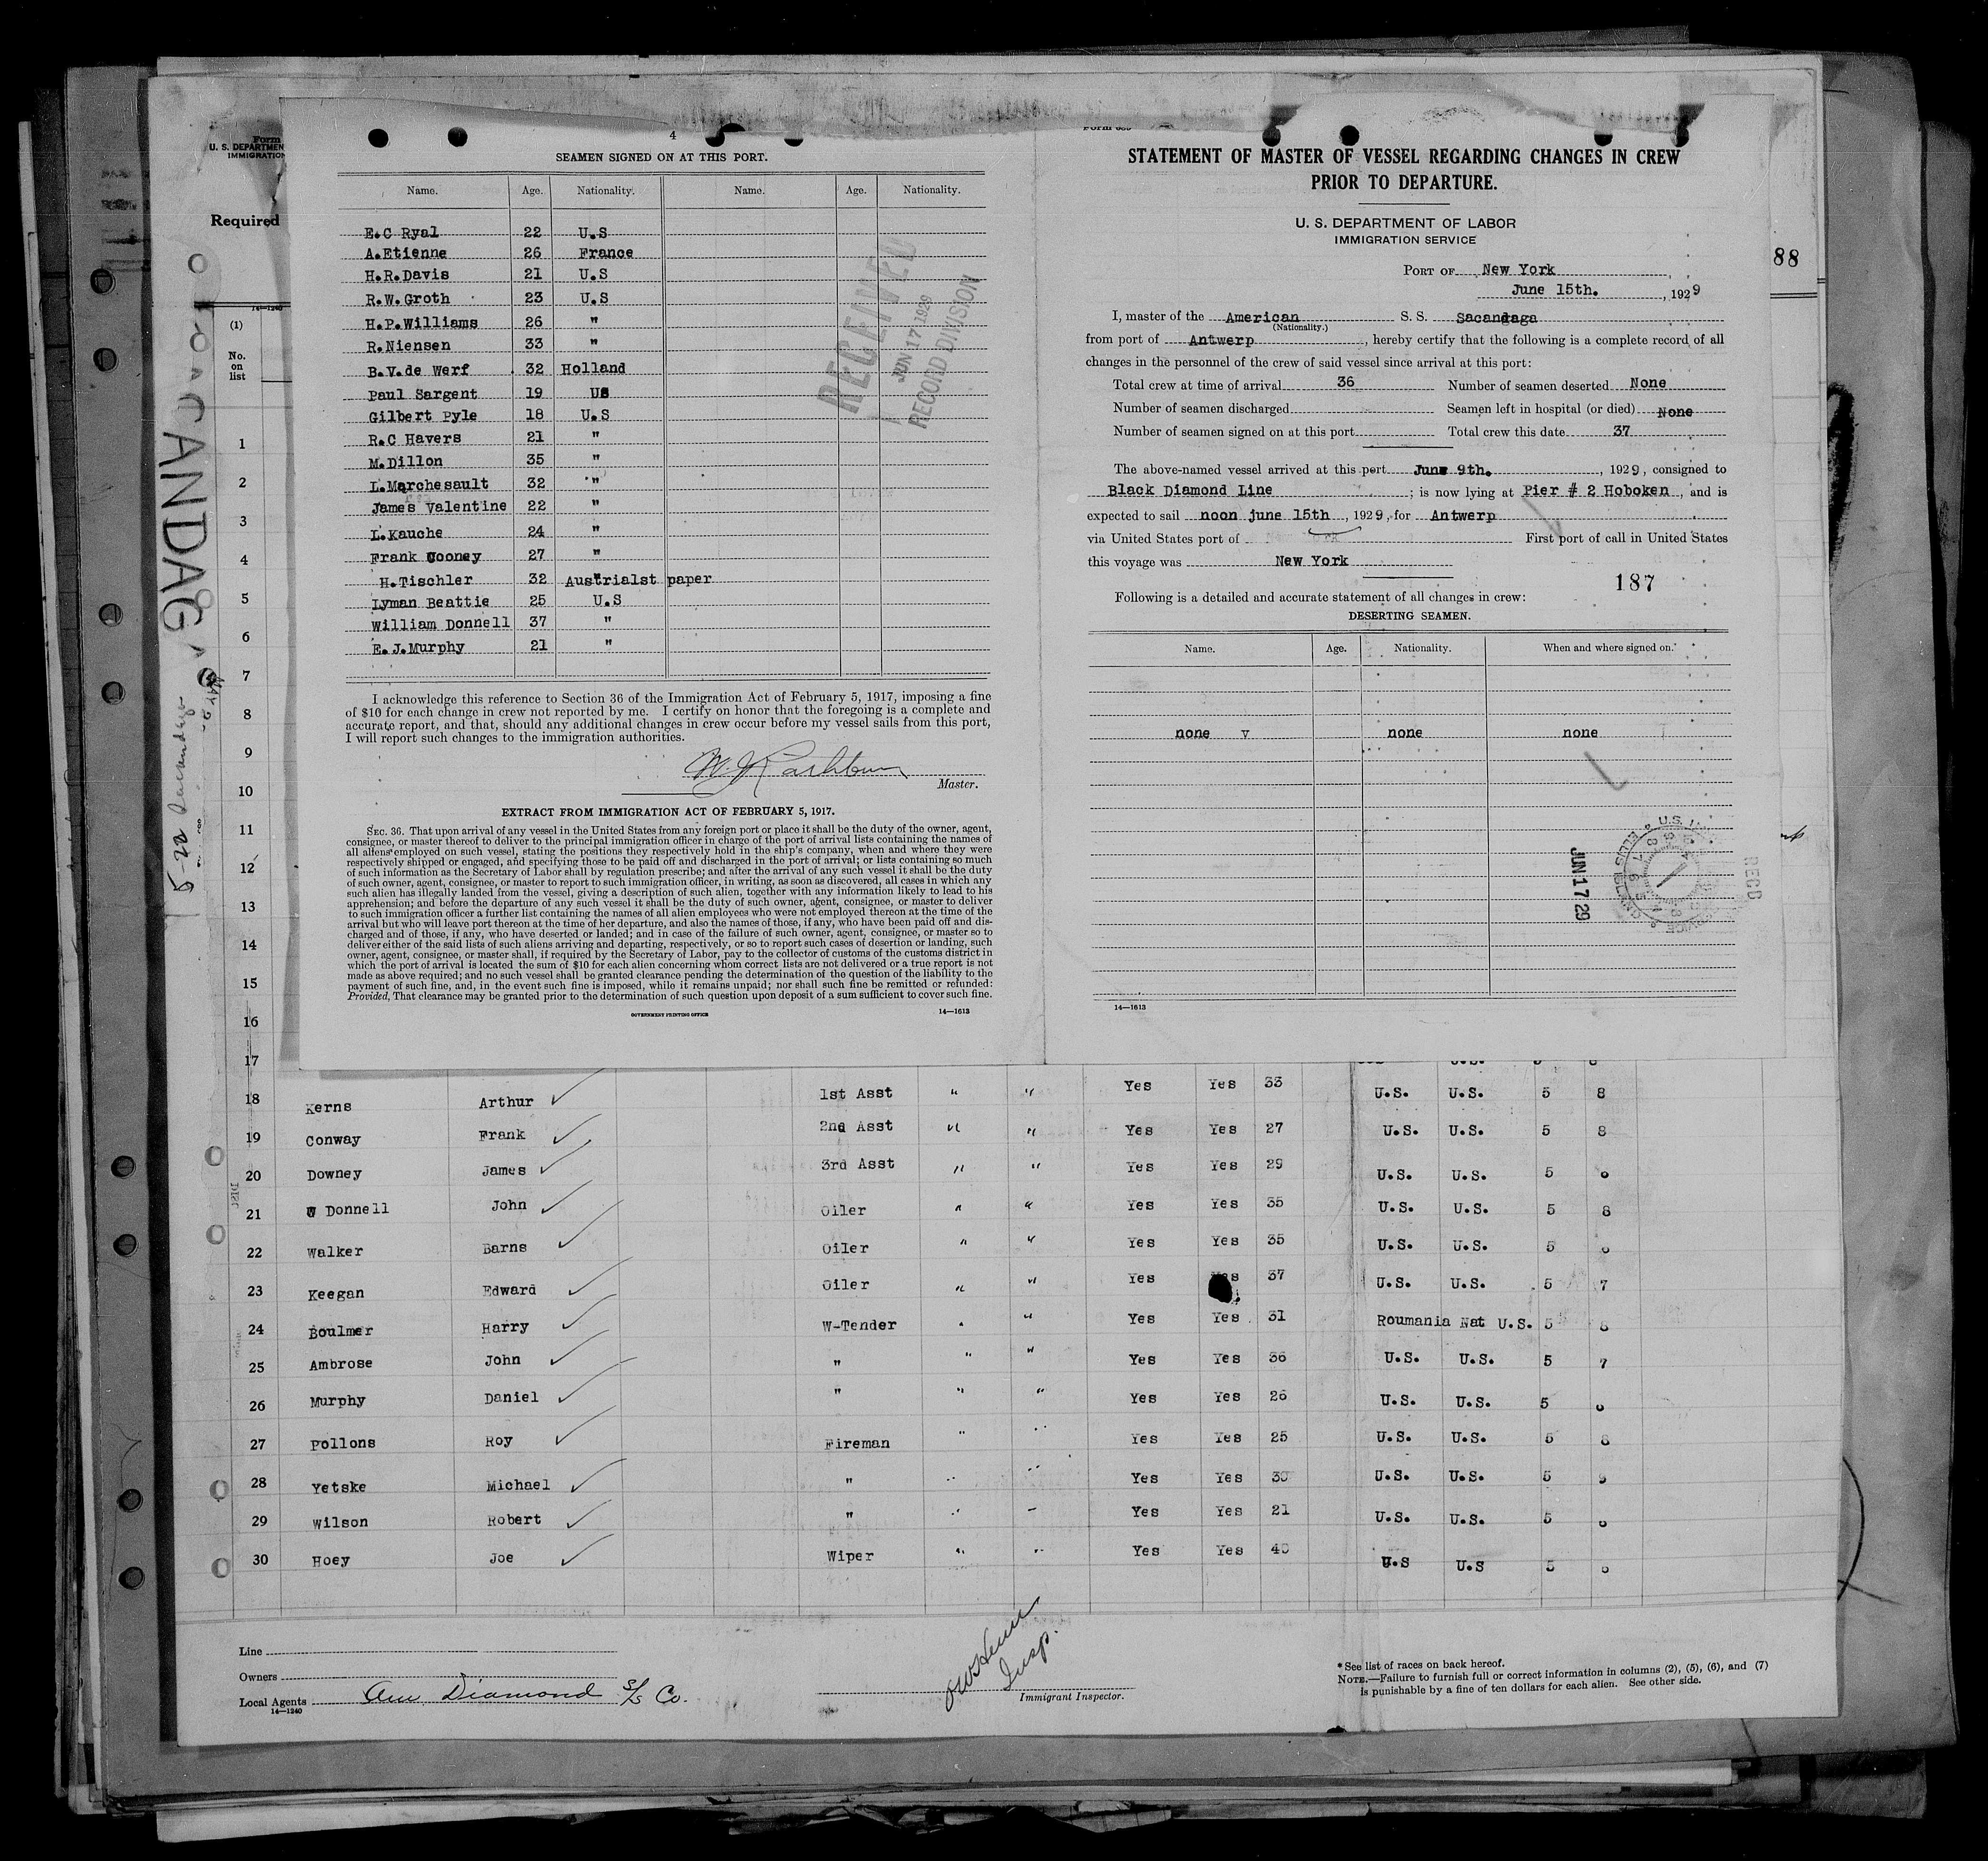 Form
U. S. DEPARTMEN
IMMIGRATION
Required
14—1240
(1)
No.
on
list
4
SEAMEN SIGNED ON AT THIS PORT.
Name. Age. Nationality. Name. Age. Nationality.
E.C Ryal 22 U.S
A.Etienne 26 France
H.R.Davis 21 U.S
R.W.Groth 23 U.S
H.P.Williams 26 "
R.Niensen 33 "
B.V.de Werf 32 Holland
Paul Sargent 19 US
Gilbert Pyle 18 U.S
R.C Havers 21 "
M.Dillon 35 "
L.Marchesault 32 "
James Valentine 22 "
L.Kauche 24 "
Frank Cooney 27 "
H.Tischler 32 Austrialst paper
Lyman Beattie 25 U.S
William Donnell 37 "
E.J.Murphy 21 "
RECEIVED
JUN 17 1929
RECORD DIVISION
I acknowledge this reference to Section 36 of the Immigration Act of February 5, 1917, imposing a fine
of $10 for each change in crew not reported by me. I certify on honor that the foregoing is a complete and
accurate report, and that, should any additional changes in crew occur before my vessel sails from this port,
I will report such changes to the immigration authorities.
Master.
EXTRACT FROM IMMIGRATION ACT OF FEBRUARY 5, 1917.
SEC. 36. That upon arrival of any vessel in the United States from any foreign port or place it shall be the duty of the owner, agent,
consignee, or master thereof to deliver to the principal immigration officer in charge of the port of arrival lists containing the names of
all aliens employed on such vessel, stating the positions they respectively hold in the ship's company, when and where they were
respectively shipped or engaged, and specifying those to be paid off and discharged in the port of arrival; or lists containing so much
of such information as the Secretary of Labor shall by regulation prescribe; and after the arrival of any such vessel it shall be the duty
of such owner, agent, consignee, or master to report to such immigration officer, in writing, as soon as discovered, all cases in which any
such alien has illegally landed from the vessel, giving a description of such alien, together with any information likely to lead to his
apprehension; and before the departure of any such vessel it shall be the duty of such owner, agent, consignee, or master to deliver
to such immigration officer a further list containing the names of all alien employees who were not employed thereon at the time of the
arrival but who will leave port thereon at the time of her departure, and also the names of those, if any, who have been paid off and dis-
charged and of those, if any, who have deserted or landed; and in case of the failure of such owner, agent, consignee, or master so to
deliver either of the said lists of such aliens arriving and departing, respectively, or so to report such cases of desertion or landing, such
owner, agent, consignee, or master shall, if required by the Secretary of Labor, pay to the collector of customs of the customs district in
which the port of arrival is located the sum of $10 for each alien concerning whom correct lists are not delivered or a true report is not
made as above required; and no such vessel shall be granted clearance pending the determination of the question of the liability to the
payment of such fine, and, in the event such fine is imposed, while it remains unpaid; nor shall such fine be remitted or refunded:
Provided, That clearance may be granted prior to the determination of such question upon deposit of a sum sufficient to cover such fine.
GOVERNMENT PRINTING OFFICE 14—1613
STATEMENT OF MASTER OF VESSEL REGARDING CHANGES IN CREW
PRIOR TO DEPARTURE.
U. S. DEPARTMENT OF LABOR
IMMIGRATION SERVICE
PORT OF New York
June 15th. , 1929
I, master of the American S. S. Sacandaga
(Nationality.)
from port of Antwerp, hereby certify that the following is a complete record of all
changes in the personnel of the crew of said vessel since arrival at this port:
Total crew at time of arrival 36 Number of seamen deserted None
Number of seamen discharged Seamen left in hospital (or died) None
Number of seamen signed on at this port Total crew this date 37
The above-named vessel arrived at this port June 9th. , 1929, consigned to
Black Diamond Line ; is now lying at Pier # 2 Hoboken , and is
expected to sail noon june 15th , 1929, for Antwerp
via United States port of First port of call in United States
this voyage was New York
187
Following is a detailed and accurate statement of all changes in crew:
DESERTING SEAMEN.
Name. Age. Nationality. When and where signed on.
none v none none
JUN 17 29
RECD
14—1613
88
1
2
3
4
5
6
7
8
9
10
11
12
13
14
15
16
17
18 Kerns Arthur 1st Asst " " Yes Yes 33 U.S. U.S. 5 8
19 Conway Frank 2nd Asst " " Yes Yes 27 U.S. U.S. 5 8
20 Downey James 3rd Asst " " Yes Yes 29 U.S. U.S. 5
21 Donnell John Oiler " " Yes Yes 35 U.S. U.S. 5 8
22 Walker Barns Oiler " " Yes Yes 35 U.S. U.S. 5
23 Keegan Edward Oiler " " Yes Yes 37 U.S. U.S. 5 7
24 Boulmer Harry W-Tender " " Yes Yes 31 Roumania Nat U.S. 5
25 Ambrose John " " " Yes Yes 36 U.S. U.S. 5 7
26 Murphy Daniel " " " Yes Yes 26 U.S. U.S. 5
27 Pollons Roy Fireman " " Yes Yes 25 U.S. U.S. 5 8
28 Yetske Michael " " " Yes Yes U.S. U.S. 5
29 Wilson Robert " " Yes Yes 21 U.S. U.S. 5
30 Hoey Joe Wiper " " Yes Yes 40 U.S U.S 5
Line
Owners
Local Agents Am Diamond S/S Co.
14—1240
Insp.
Immigrant Inspector.
* See list of races on back hereof.
NOTE.—Failure to furnish full or correct information in columns (2), (5), (6), and (7)
is punishable by a fine of ten dollars for each alien. See other side.